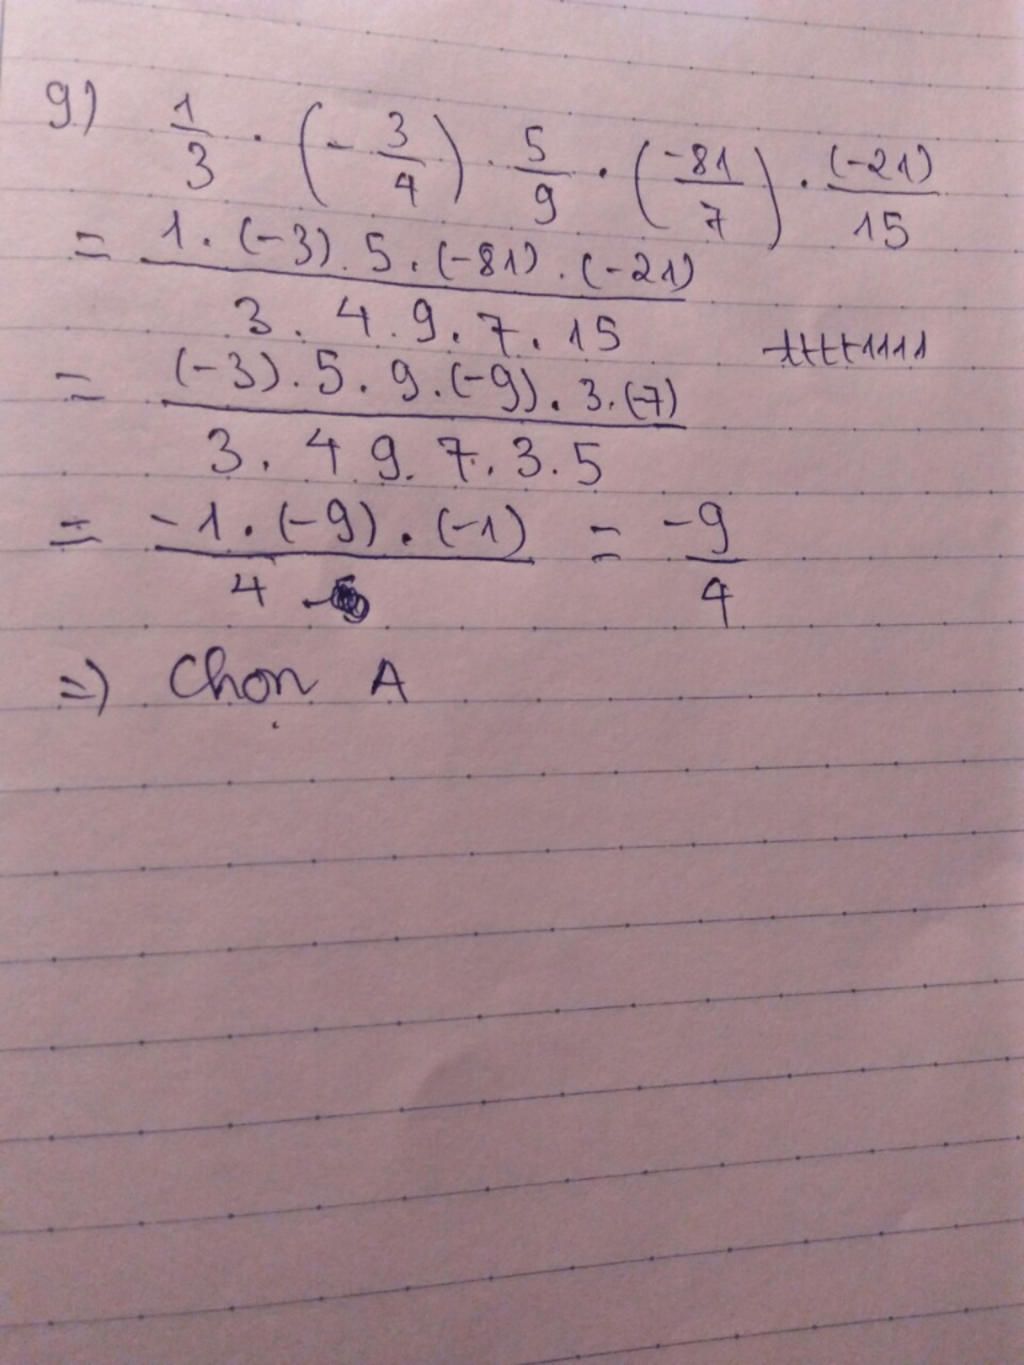 9) 1/3 . (- 3/4) . 5/9 . (-81/7) . (-21)/15
= 1 . (-3) . 5 . (-81) . (-21) / 3 . 4 . 9 . 7 . 15
= (-3) . 5 . 9 . (-9) . 3 . (-7) / 3 . 4 9 . 7 . 3 . 5
= -1 . (-9) . (-1) / 4 = -9/4
=> Chọn A